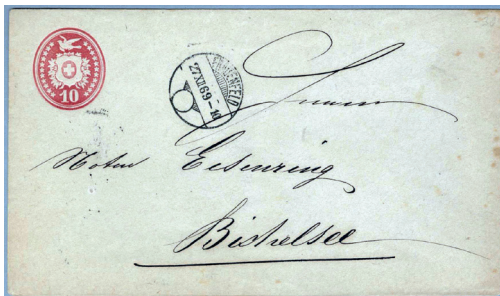 10
FRAUENFELD
27 XI 69 - 10
Herrn
Notar Eisenring
Bichelsee